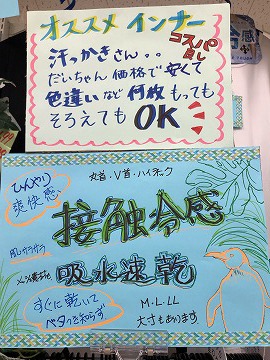 オススメ インナー
コスパ
良し
汗っかきさん。。
だいちゃん 価格で 安くて
色違いなど 何枚 もっても
そろえても OK
ひんやり
爽快感、
丸首・V首・ハイネック
接触冷感
肌サラサラ
吸水速乾
すぐに乾いて
ベタつき知らず
M・L・LL
大寸もあります。